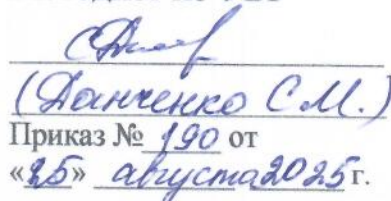 (Данченко С.М.)
Приказ № 190 от
«25» августа 2025 г.